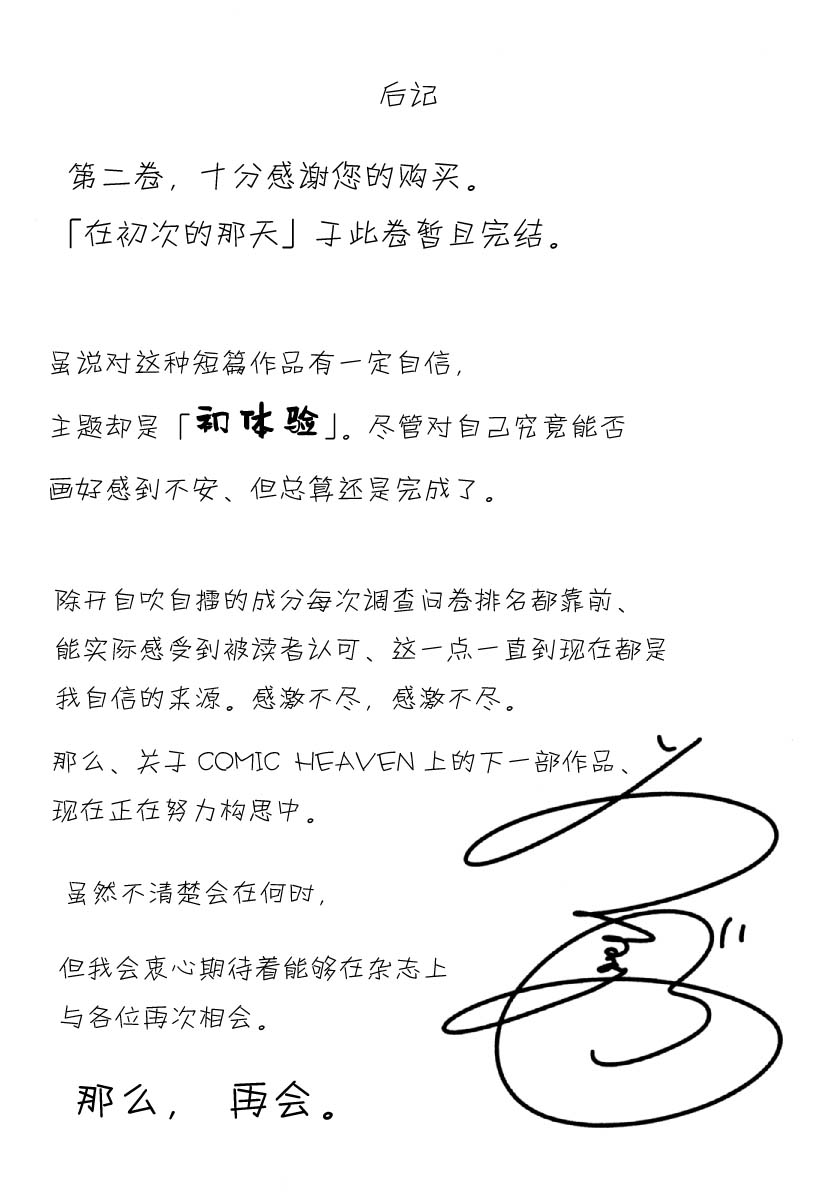 后记
第二卷，十分感谢您的购买。
「在初次的那天」于此卷暂且完结。
虽说对这种短篇作品有一定自信，
主题却是「初体验」。尽管对自己究竟能否
画好感到不安、但总算还是完成了。
除开自吹自擂的成分每次调查问卷排名都靠前、
能实际感受到被读者认可、这一点一直到现在都是
我自信的来源。感激不尽，感激不尽。
那么、关于 COMIC HEAVEN 上的下一部作品、
现在正在努力构思中。
虽然不清楚会在何时，
但我会衷心期待着能够在杂志上
与各位再次相会。
那么， 再会。